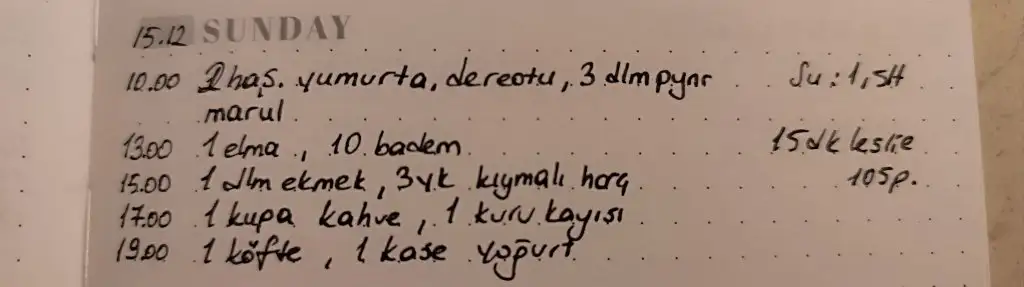 15.12 SUNDAY
10.00 2 haş. yumurta, dereotu, 3 dlm pynr Su : 1,5lt
marul
13.00 1 elma, 10 badem 15 dk leslie
15.00 1 dlm ekmek, 3 yk kıymalı harç 105p.
17.00 1 kupa kahve, 1 kuru kayısı
19.00 1 köfte, 1 kase yoğurt